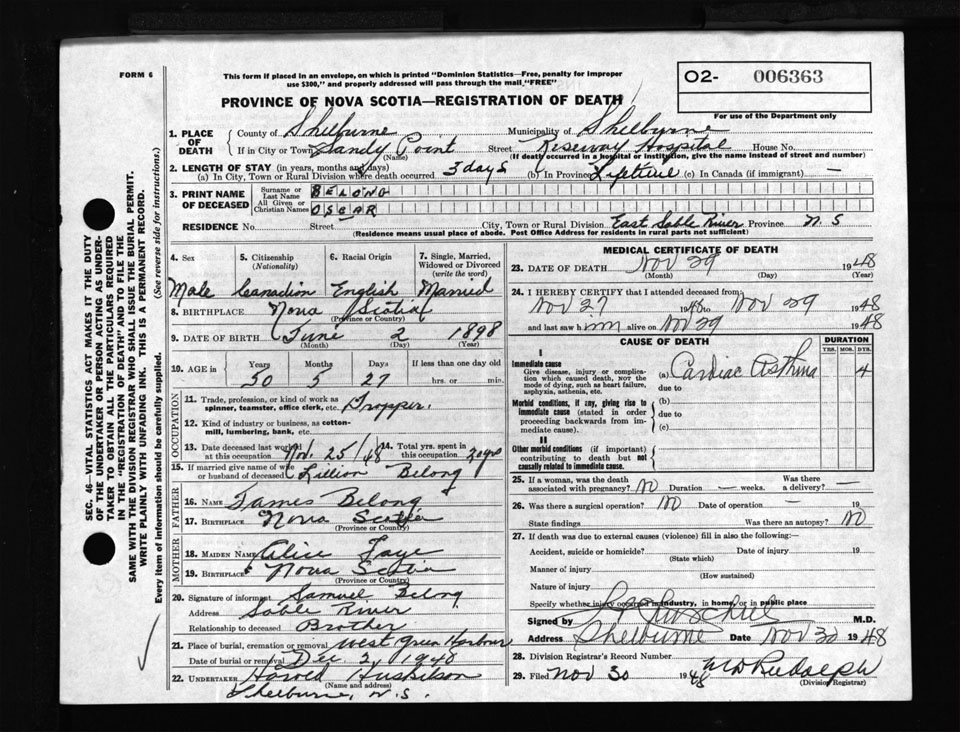 FORM 6
This form if placed in an envelope, on which is printed "Dominion Statistics—Free, penalty for improper
use $300," and properly addressed will pass through the mail "FREE"
O2- 006363
For use of the Department only
PROVINCE OF NOVA SCOTIA—REGISTRATION OF DEATH
1. PLACE OF DEATH
County of Shelburne Municipality of Shelburne
If in City or Town Sandy Point Street Roseway Hospital House No.
(Name) (If death occurred in a hospital or institution, give the name instead of street and number)
2. LENGTH OF STAY (in years, months and days)
(a) In City, Town or Rural Division where death occurred 3 days (b) In Province Lifetime (c) In Canada (if immigrant) —
3. PRINT NAME OF DECEASED
Surname or Last Name BELONG
All Given or Christian Names OSCAR
RESIDENCE No. Street City, Town or Rural Division East Sable River Province N. S
(Residence means usual place of abode. Post Office Address for residents in rural parts not sufficient)
4. Sex 5. Citizenship (Nationality) 6. Racial Origin 7. Single, Married, Widowed or Divorced (write the word)
Male Canadian English Married
8. BIRTHPLACE Nova Scotia
(Province or Country)
9. DATE OF BIRTH June 2 1898
(Month) (Day) (Year)
10. AGE in Years Months Days If less than one day old
50 5 27 hrs. or min.
OCCUPATION
11. Trade, profession, or kind of work as
spinner, teamster, office clerk, etc. Tropper.
12. Kind of industry or business, as cotton-
mill, lumbering, bank, etc.
13. Date deceased last worked at this occupation Nov. 25/48 14. Total yrs. spent in this occupation 20 yrs
15. If married give name of wife or husband of deceased Lillion Belong
FATHER
16. NAME James Belong
17. BIRTHPLACE Nova Scotia
(Province or Country)
MOTHER
18. MAIDEN NAME Alice Faye
19. BIRTHPLACE Nova Scotia
(Province or Country)
20. Signature of informant Samuel Belong
Address Sable River
Relationship to deceased Brother
21. Place of burial, cremation or removal West Green Harbour
Date of burial or removal Dec. 2, 1948
22. UNDERTAKER Harold Huskilson
(Name and address)
Shelburne, N.S.
MEDICAL CERTIFICATE OF DEATH
23. DATE OF DEATH Nov 29 1948
(Month) (Day) (Year)
24. I HEREBY CERTIFY that I attended deceased from
Nov 27 1948 to Nov 29 1948
and last saw him alive on Nov 29 1948
CAUSE OF DEATH DURATION
YRS. MOS. DYS.
I
Immediate cause
Give disease, injury or complication which caused death, NOT the mode of dying, such as heart failure, asphyxia, asthenia, etc.
(a) Cardiac Asthma 4
due to
Morbid conditions, if any, giving rise to immediate cause (stated in order proceeding backwards from immediate cause).
(b)
due to
(c)
II
Other morbid conditions (if important) contributing to death but not causally related to immediate cause.
25. If a woman, was the death associated with pregnancy? No Duration — weeks. Was there a delivery? —
26. Was there a surgical operation? No Date of operation — 19
State findings Was there an autopsy? No
27. If death was due to external causes (violence) fill in also the following:—
Accident, suicide or homicide? Date of injury 19
(State which)
Manner of injury
(How sustained)
Nature of injury
Specify whether injury occurred in industry, in home, or in public place
Signed by M.D.
Address Shelburne Date Nov 30 1948
28. Division Registrar's Record Number
29. Filed Nov 30 1948 Rudolph
(Division Registrar)
SEC. 46—VITAL STATISTICS ACT MAKES IT THE DUTY
OF THE UNDERTAKER OR PERSON ACTING AS UNDER-
TAKER TO OBTAIN ALL THE PARTICULARS REQUIRED
IN THE "REGISTRATION OF DEATH" AND TO FILE THE
SAME WITH THE DIVISION REGISTRAR WHO SHALL ISSUE THE BURIAL PERMIT.
WRITE PLAINLY WITH UNFADING INK. THIS IS A PERMANENT RECORD.
Every item of information should be carefully supplied. (See reverse side for instructions.)